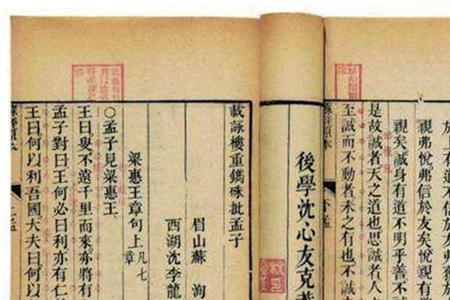 於上有道不信於友弗
親弗悅弗信於友矣悅親有
親矣誠身有道不明乎善不
是故誠者天之道也思誠者人
至誠而不動者未之有也不誠
下孟
後學沈心友克
載詠樓重鐫硃批孟子
眉山蘇 洵
西湖沈李龍
梁惠王章句上凡七章
○孟子見梁惠王
王曰叟不遠千里而來亦將有
孟子對曰王何必曰利亦有仁
王曰何以利吾國大夫曰何以
上孟